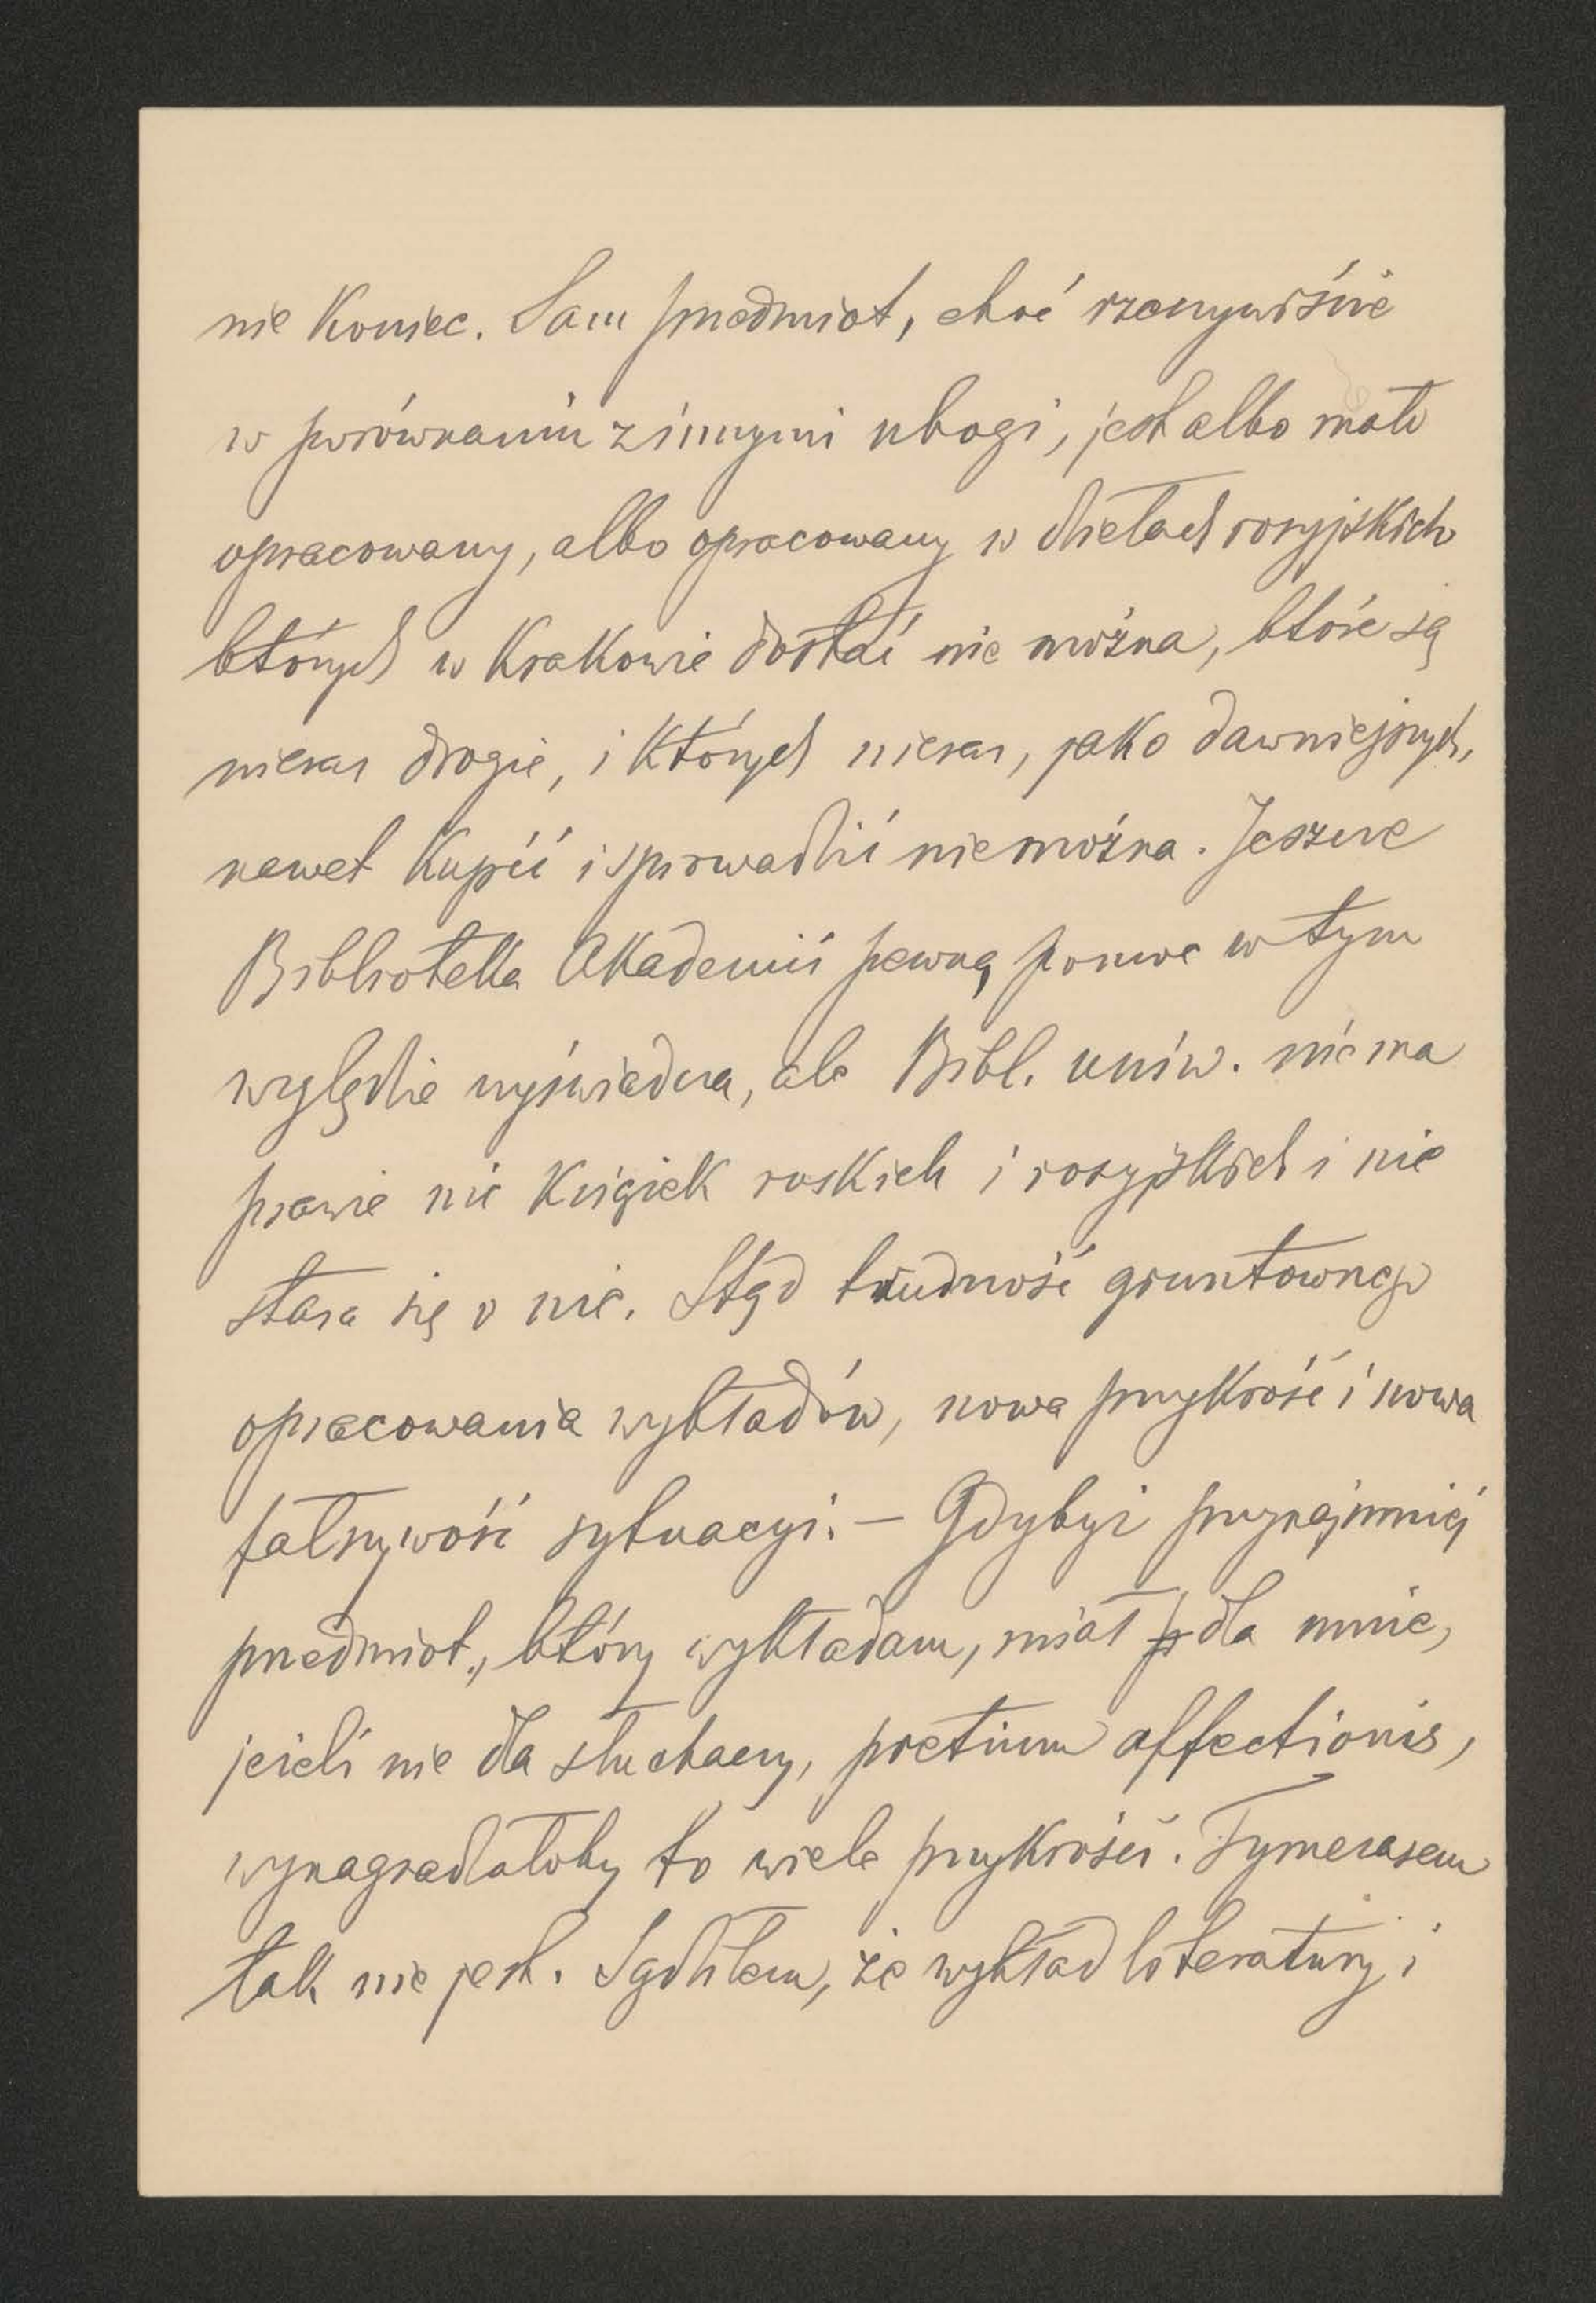 nie koniec. Sam przedmiot, choć rzeczywiście
w porównaniu z innymi ubogi, jest albo mało
opracowany, albo opracowany w dziełach rosyjskich
których w Krakowie dostać nie można, które są
nieraz drogie, i których nieraz, jako dawniejszych,
nawet kupić i sprowadzić nie można. Jeszcze
Biblioteka Akademii pewną pomoc w tym
względzie wyświadcza, ale Bibl. uniw. nie ma
prawie nic książek ruskich i rosyjskich i nie
stara się o nie. Stąd trudność gruntownego
opracowania wykładów, nowa przykrość i nowa
fałszywość sytuacyi. — Gdybyż przynajmniej
przedmiot, który wykładam, miał dla mnie,
jeżeli nie dla słuchaczy, pretium affectionis,
wynagradzałoby to wiele przykrości. Tymczasem
tak nie jest. Sądziłem, że wykład literatury i